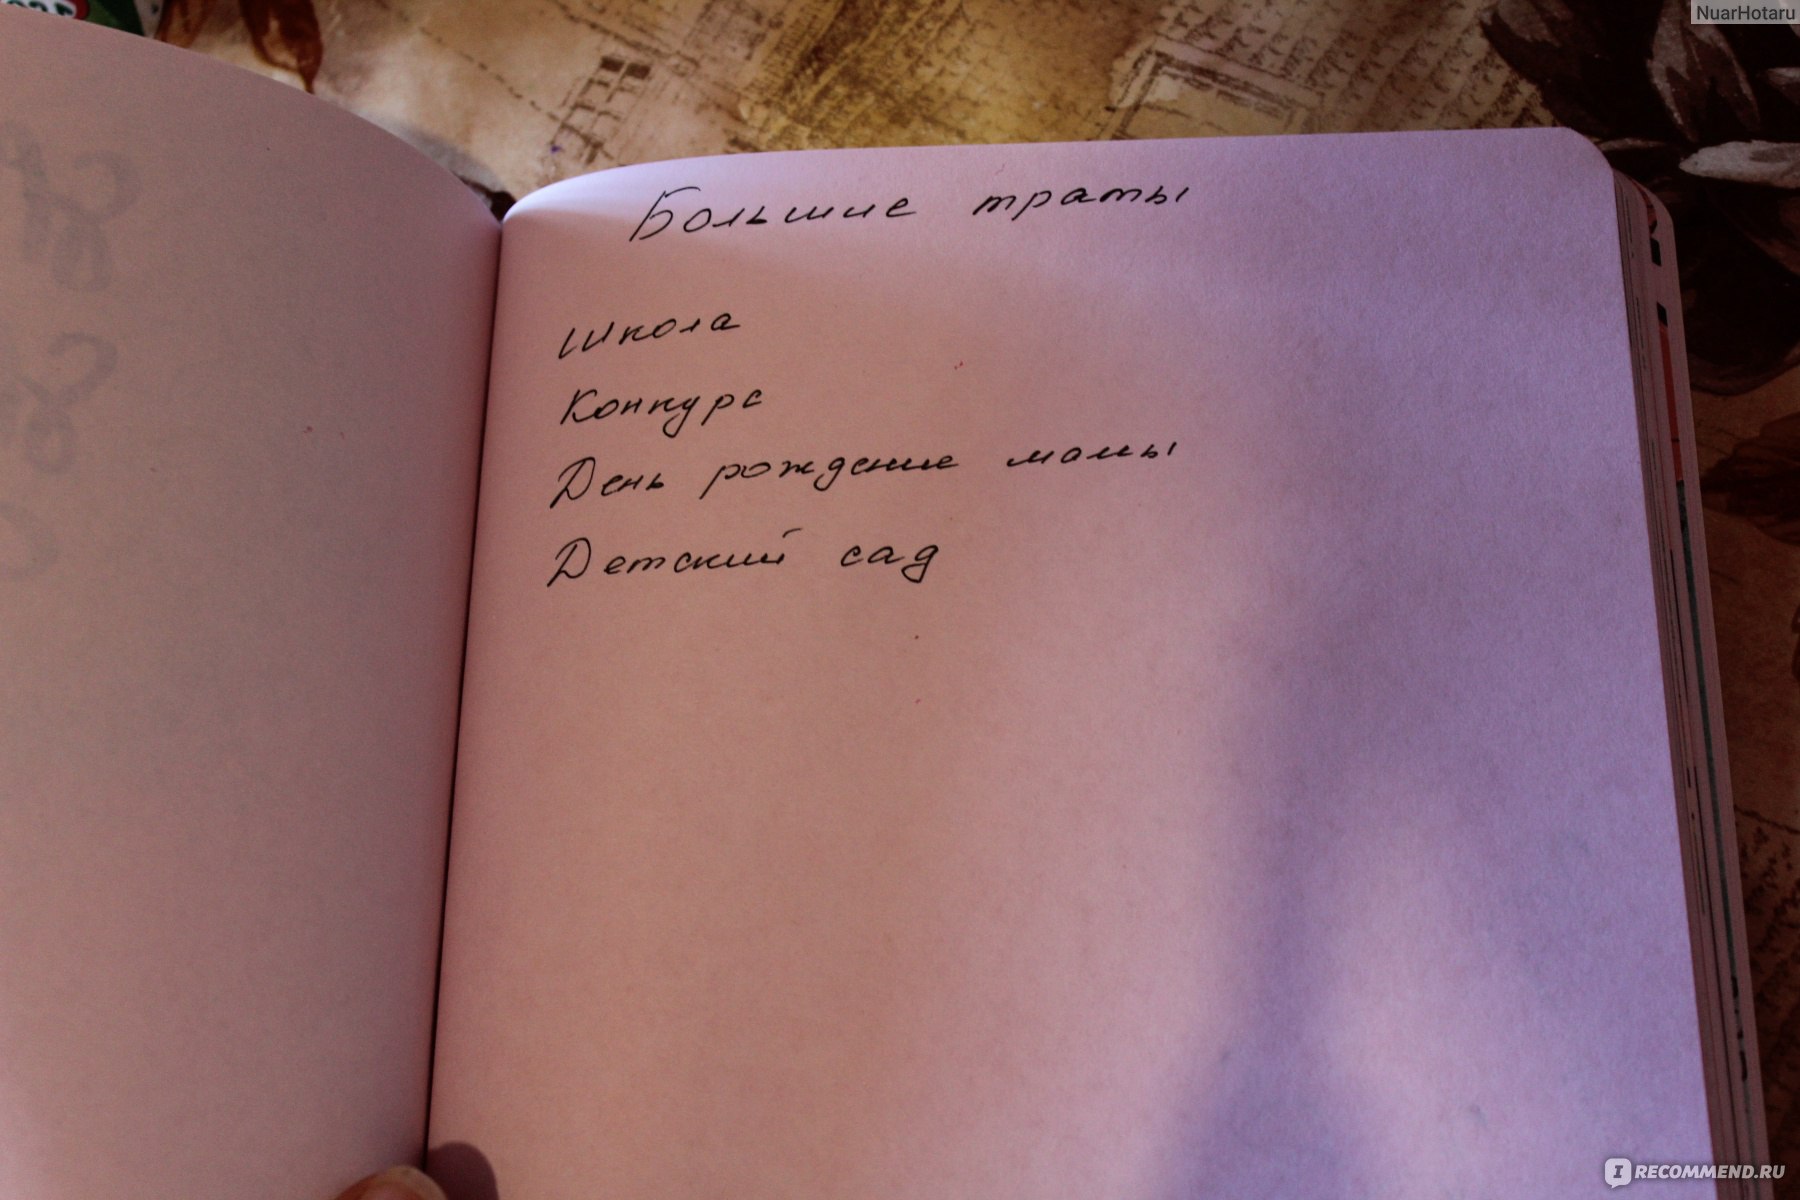 NuarHotaru
Большие траты
Школа
Конкурс
День рождение мамы
Детский сад
IRECOMMEND.RU